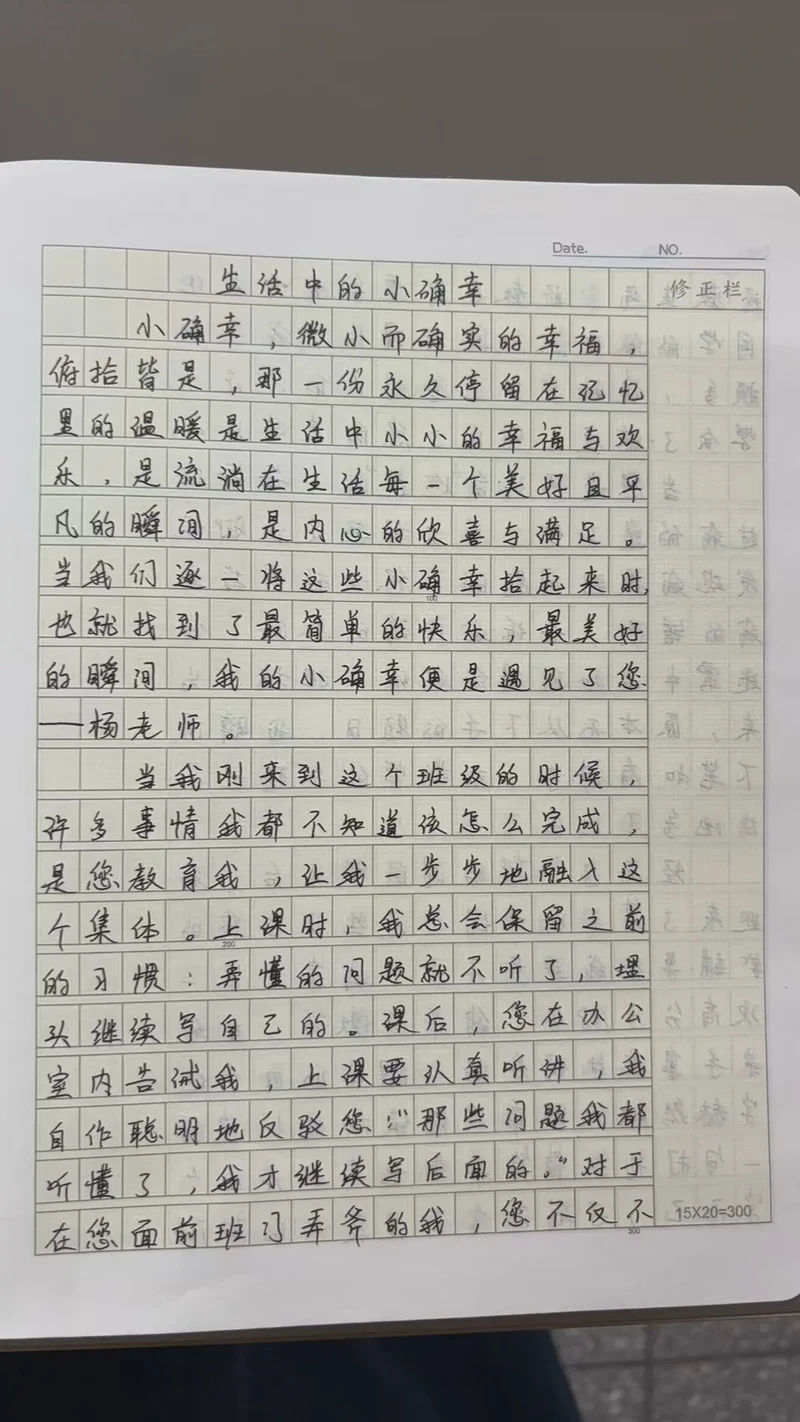 Date.
NO.
生活中的小确幸
修正栏
小确幸，微小而确实的幸福，
俯拾皆是，那一份永久停留在记忆
里的温暖是生活中小小的幸福与欢
乐，是流淌在生活每一个美好且平
凡的瞬间，是内心的欣喜与满足。
当我们逐一将这些小确幸拾起来时，
100
也就找到了最简单的快乐，最美好
的瞬间，我的小确幸便是遇见了您
——杨老师。
当我刚来到这个班级的时候，
许多事情我都不知道该怎么完成，
是您教育我，让我一步步地融入这
个集体。上课时，我总会保留之前
200
的习惯：弄懂的问题就不听了，埋
头继续写自己的。课后，您在办公
室内告诫我，上课要认真听讲，我
自作聪明地反驳您：“那些问题我都
听懂了，我才继续写后面的。”对于
在您面前班门弄斧的我，您不仅不
300
15X20=300